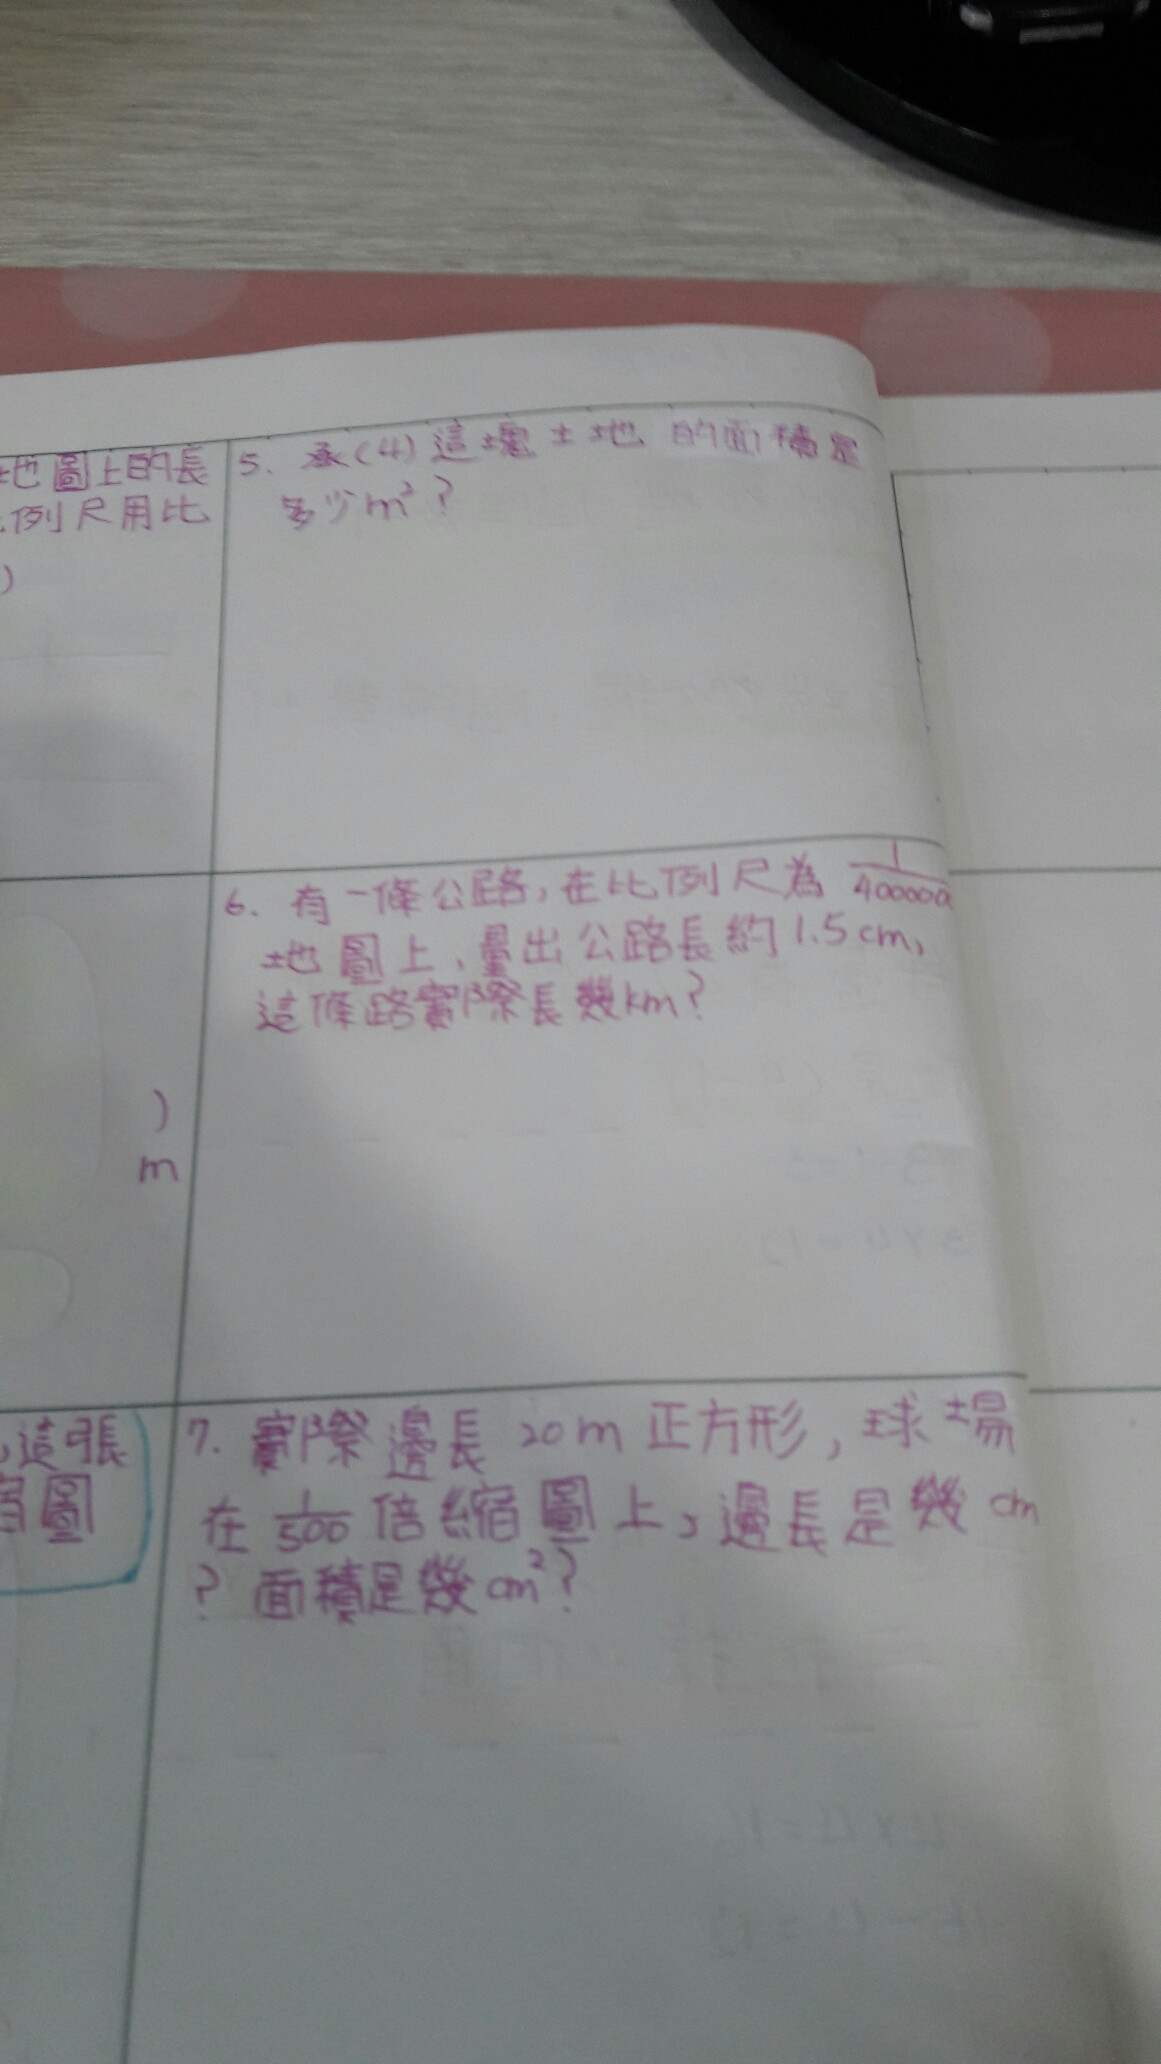 地圖上的長
例尺用比
)
)
m
這張
圖
5. 承(4)這塊土地的面積是
多少m²?
6. 有一條公路,在比例尺為 1/400000
地圖上,量出公路長約1.5cm,
這條路實際長幾km?
7. 實際邊長20m正方形,球場
在 1/500 倍縮圖上,邊長是幾cm
?面積是幾cm²?